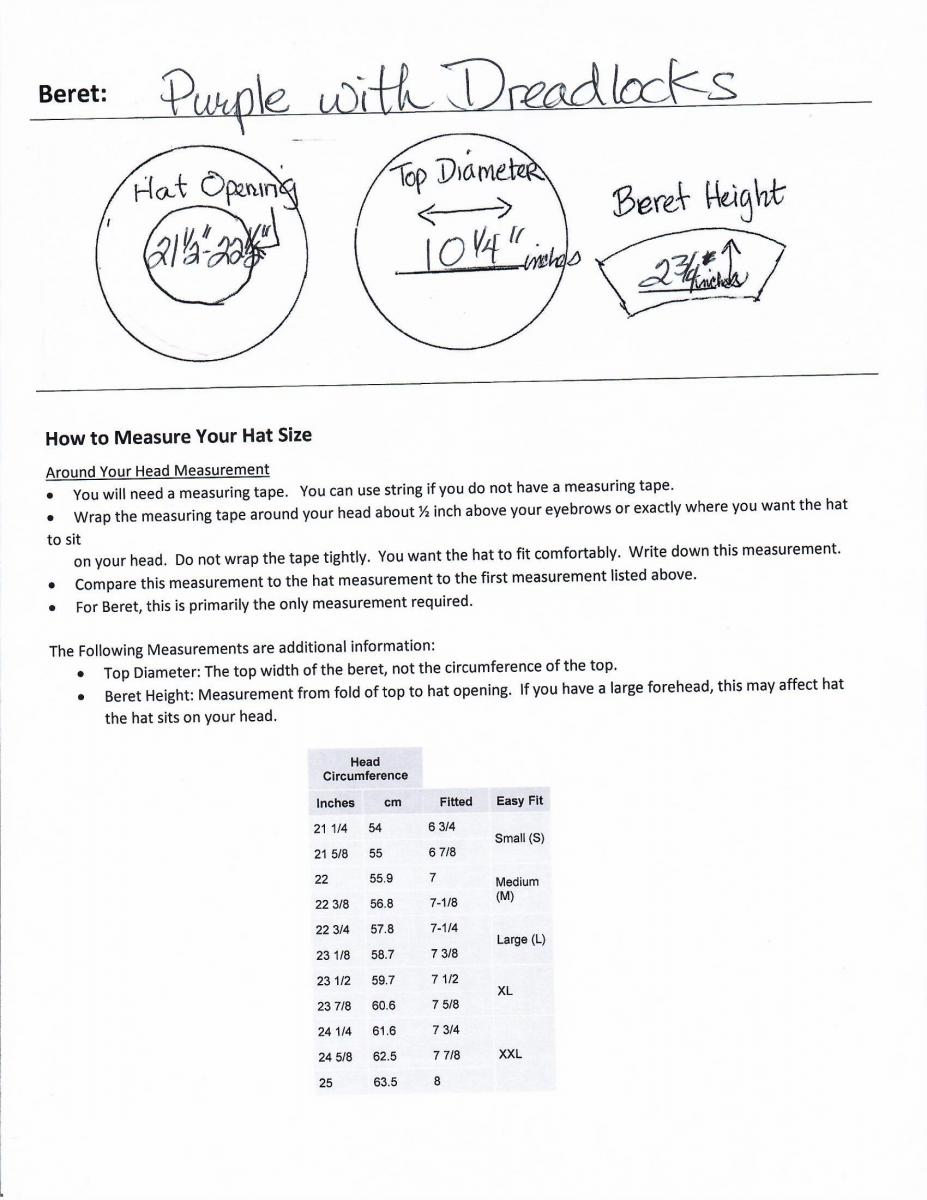 Beret: Purple with Dreadlocks
Hat Opening
21 ½"-22
Top Diameter
10 1/4" inches
Beret Height
2 3/4 inches
How to Measure Your Hat Size
Around Your Head Measurement
• You will need a measuring tape. You can use string if you do not have a measuring tape.
• Wrap the measuring tape around your head about ½ inch above your eyebrows or exactly where you want the hat
to sit
on your head. Do not wrap the tape tightly. You want the hat to fit comfortably. Write down this measurement.
• Compare this measurement to the hat measurement to the first measurement listed above.
• For Beret, this is primarily the only measurement required.
The Following Measurements are additional information:
• Top Diameter: The top width of the beret, not the circumference of the top.
• Beret Height: Measurement from fold of top to hat opening. If you have a large forehead, this may affect hat
the hat sits on your head.
Head
Circumference
Inches cm Fitted Easy Fit
21 1/4 54 6 3/4
Small (S)
21 5/8 55 6 7/8
22 55.9 7
Medium
(M)
22 3/8 56.8 7-1/8
22 3/4 57.8 7-1/4
Large (L)
23 1/8 58.7 7 3/8
23 1/2 59.7 7 1/2
XL
23 7/8 60.6 7 5/8
24 1/4 61.6 7 3/4
24 5/8 62.5 7 7/8 XXL
25 63.5 8